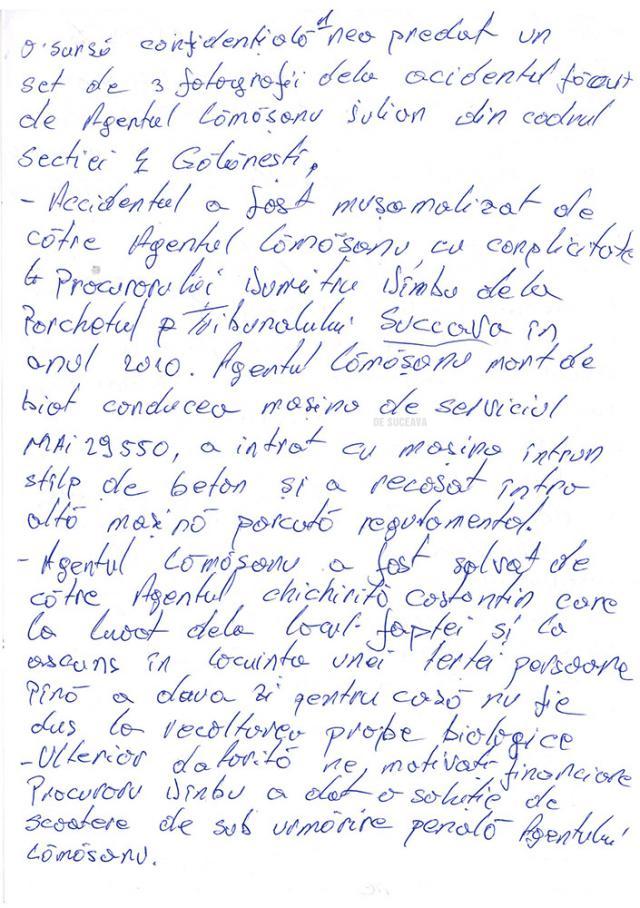 O sursă confidențială d nea predat un
set de 3 fotografii dela accidentul făcut
de Agentul Cămășanu Iulian din cadrul
Secției 4 Gălănești,
- Accidentul a fost mușamalizat de
către Agentul Cămășanu, cu conplicitate
Procurorului Dumitru Dîmbu dela
Parchetul Tribunalului Suceava în
anul 2010. Agentul Cămășanu mort de
biat conducea mașina de serviciul
MAI 29550, a intrat cu mașina întrun
stîlp de beton și a recoșat întro
altă mașină parcată regulamental.
- Agentul Cămășanu a fost salvat de
către Agentul Chichiriță Costantin care
la luoat dela locul faptei și la
ascuns în locuința unei terței persoane
Pînă a dava zi pentru casă nu fie
dus la recoltarea probe biologice
- Ulterior datorită ne motivati financiare
Procuroru Dîmbu a dat o soluție de
scoatere de sub urmărire penală Agentului
Cămășanu.
DE SUCEAVA